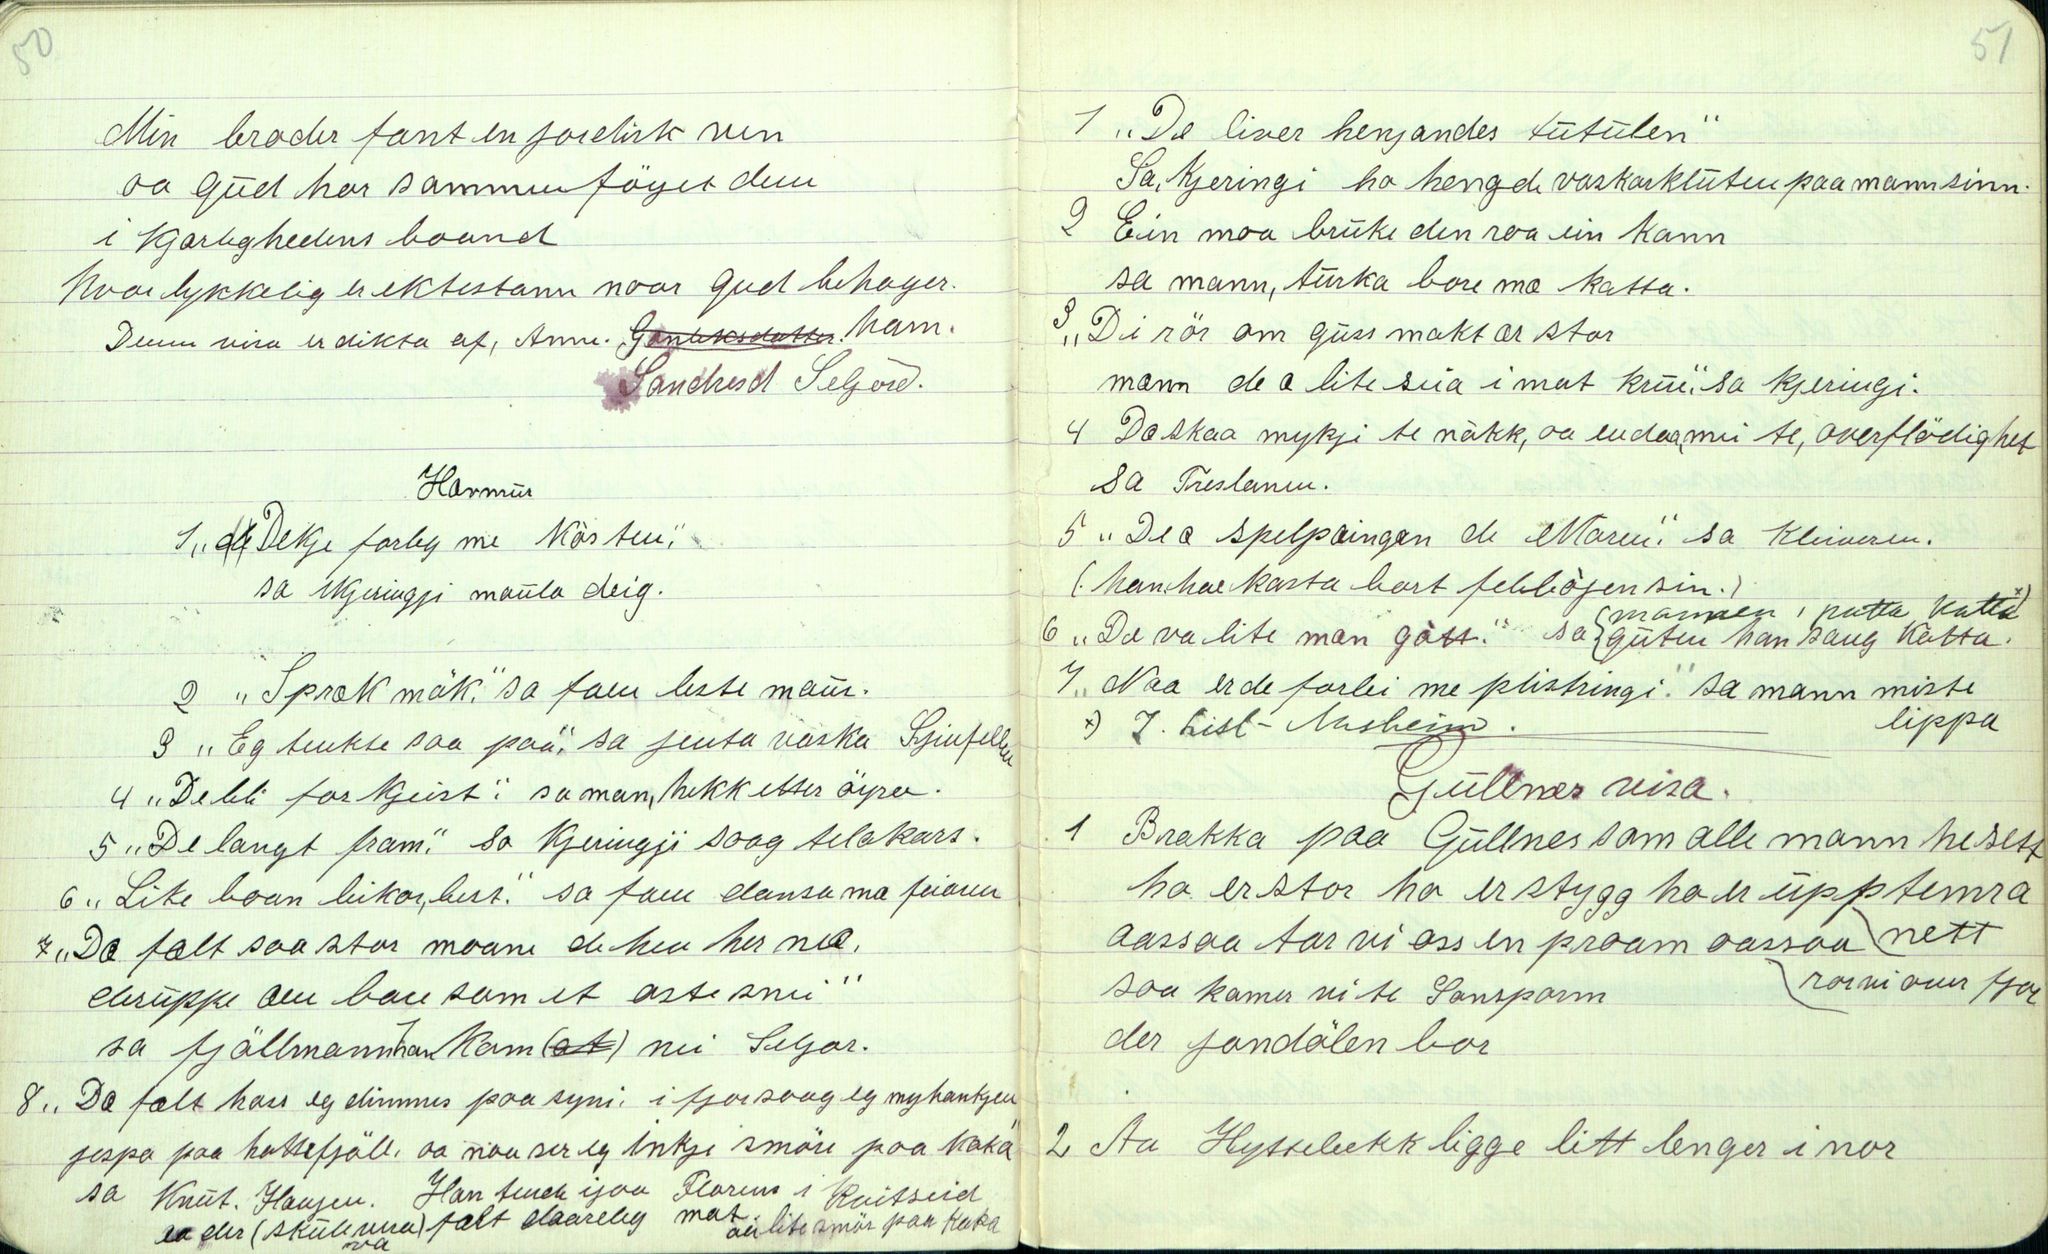 50
Min broder fant en jordisk ven
oa Gud har sammenföyet dem
i Kjærlighedens boand
hvor lykkelig er ektestann naar Gud behager.
Denne visa er dikta af, Anne. Gonleksdatter. Ham.
Sandresd Seljord.
Hærmür
1 „de Dekje farleg me Kòsten",
sa Kjeringji maula deig.
2 „Spræk mòk", sa faen leste maür.
3 „Eg tenkte saa paa", sa jenta vaska Sjinfellen
4 „De bli for Kjeist": sa man, hekk etter öyra.
5 „De langt fram." sa Kjeringji soag telakars.
6 „Like boan leikar, best." sa faen dansa mæ feiaren
7 „Dæ fælt saa stor moane de heu her næ,
deruppe æu bæu som et ostesnei"
sa fjällmann han Kom (at) nei Seljor.
8 „Dæ fælt hoss eg dimmes paa syni. i fjor soag eg myhankjen
jespa paa hattefjöll, oa noa ser eg inkje smöre paa kaka"
sa Knüt. Haugen. Han tente ijoa Florens i Kvitseid
oa der (sküle vera) fælt daareleg mat.
va
oa lite smör paa Kaka
51
1 „De liver hengandes tütülen"
Sa, Kjeringi ho hengde vaskarklüten paa mann sinn.
2 Ein moa brüke den roa ein Kann
sa mann, türka bore mæ Katta.
3 „Di rör om güss makt ær stor
menn de æ lite süa i mat krüü", sa Kjeringi.
4 Dæ skaa mykji te nòkk, oa endaa, mei te, overflödighet
sa Treslanen.
5 „De æ spelpæingan de Maren". sa Kleiveren.
(. han hae kasta bort felebògen sin.)
6 „De va lite men gòtt." sa { mannen, putta Katta x)
güten han saug Katta.
7 „Naa er de forbi me plistringi." sa mann miste
lippa
x) J. Lisl- Aasheim.
Güllnes visa.
1 Brakka paa Güllnes som alle mann he sett
ho er stor ho er stygg ho er üpptemra
nett
aassaa tar vi oss en praam oassaa
ror vi over fjor
saa kamer vi te Sansparm
der jondölen bor
2 Aa Hyttebekk ligge litt lenger i nor